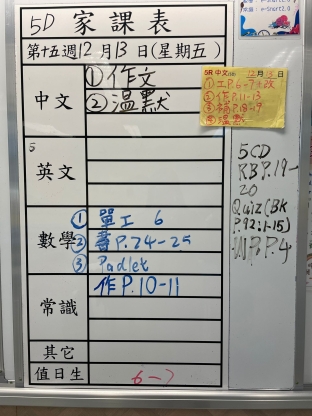 5D 家課表
第十五週12月13日(星期五)
中文
①作文
②溫默
5
英文
數學
①單工 6
②書P.24-25
③Padlet
常識
作P.10-11
其它
值日生
6-7
5R 中文 12月13日
①工P.6-7+改
②作P.11-13
③補P.18-9
④溫默
5CD
RB P.19-
20
Quiz(BK
P.92:1-15)
P.4